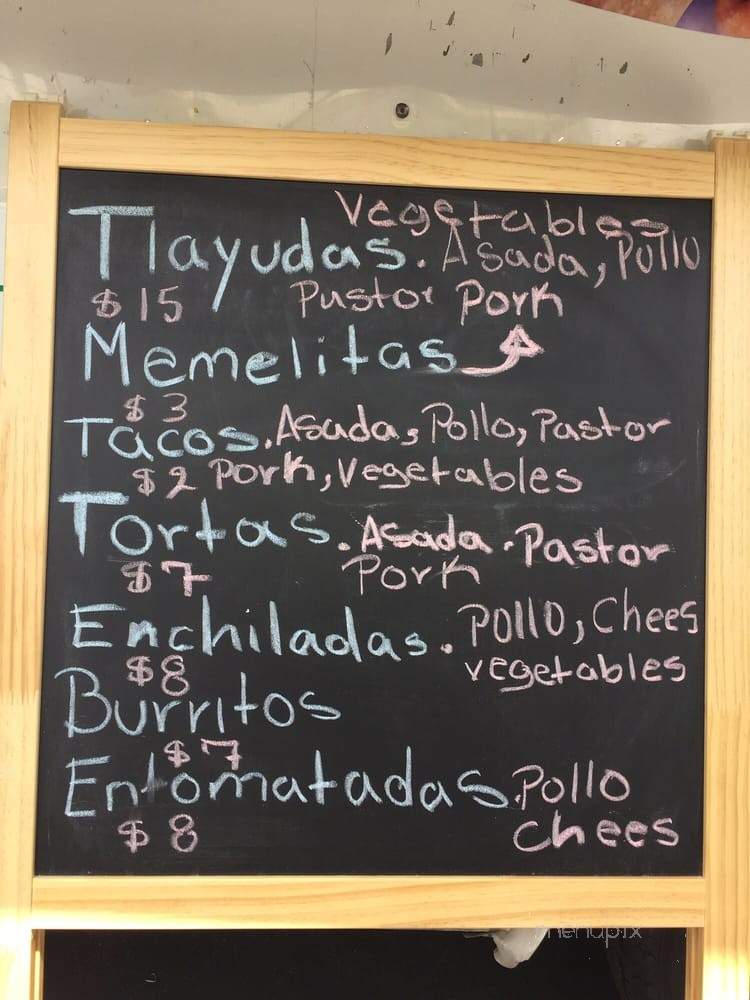 Vegetables
Tlayudas. Asada, Pollo
$15 Pastor Pork
Memelitas
$3
Tacos. Asada, Pollo, Pastor
$2 Pork, Vegetables
Tortas. Asada. Pastor
$7 Pork
Enchiladas. Pollo, Chees
$8 vegetables
Burritos
$7
Entomatadas. Pollo
$8 chees
menupix